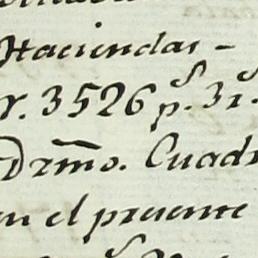 Haciendas -
r. 3526 p.s 31.
Drmo. Cuadr
en el presente